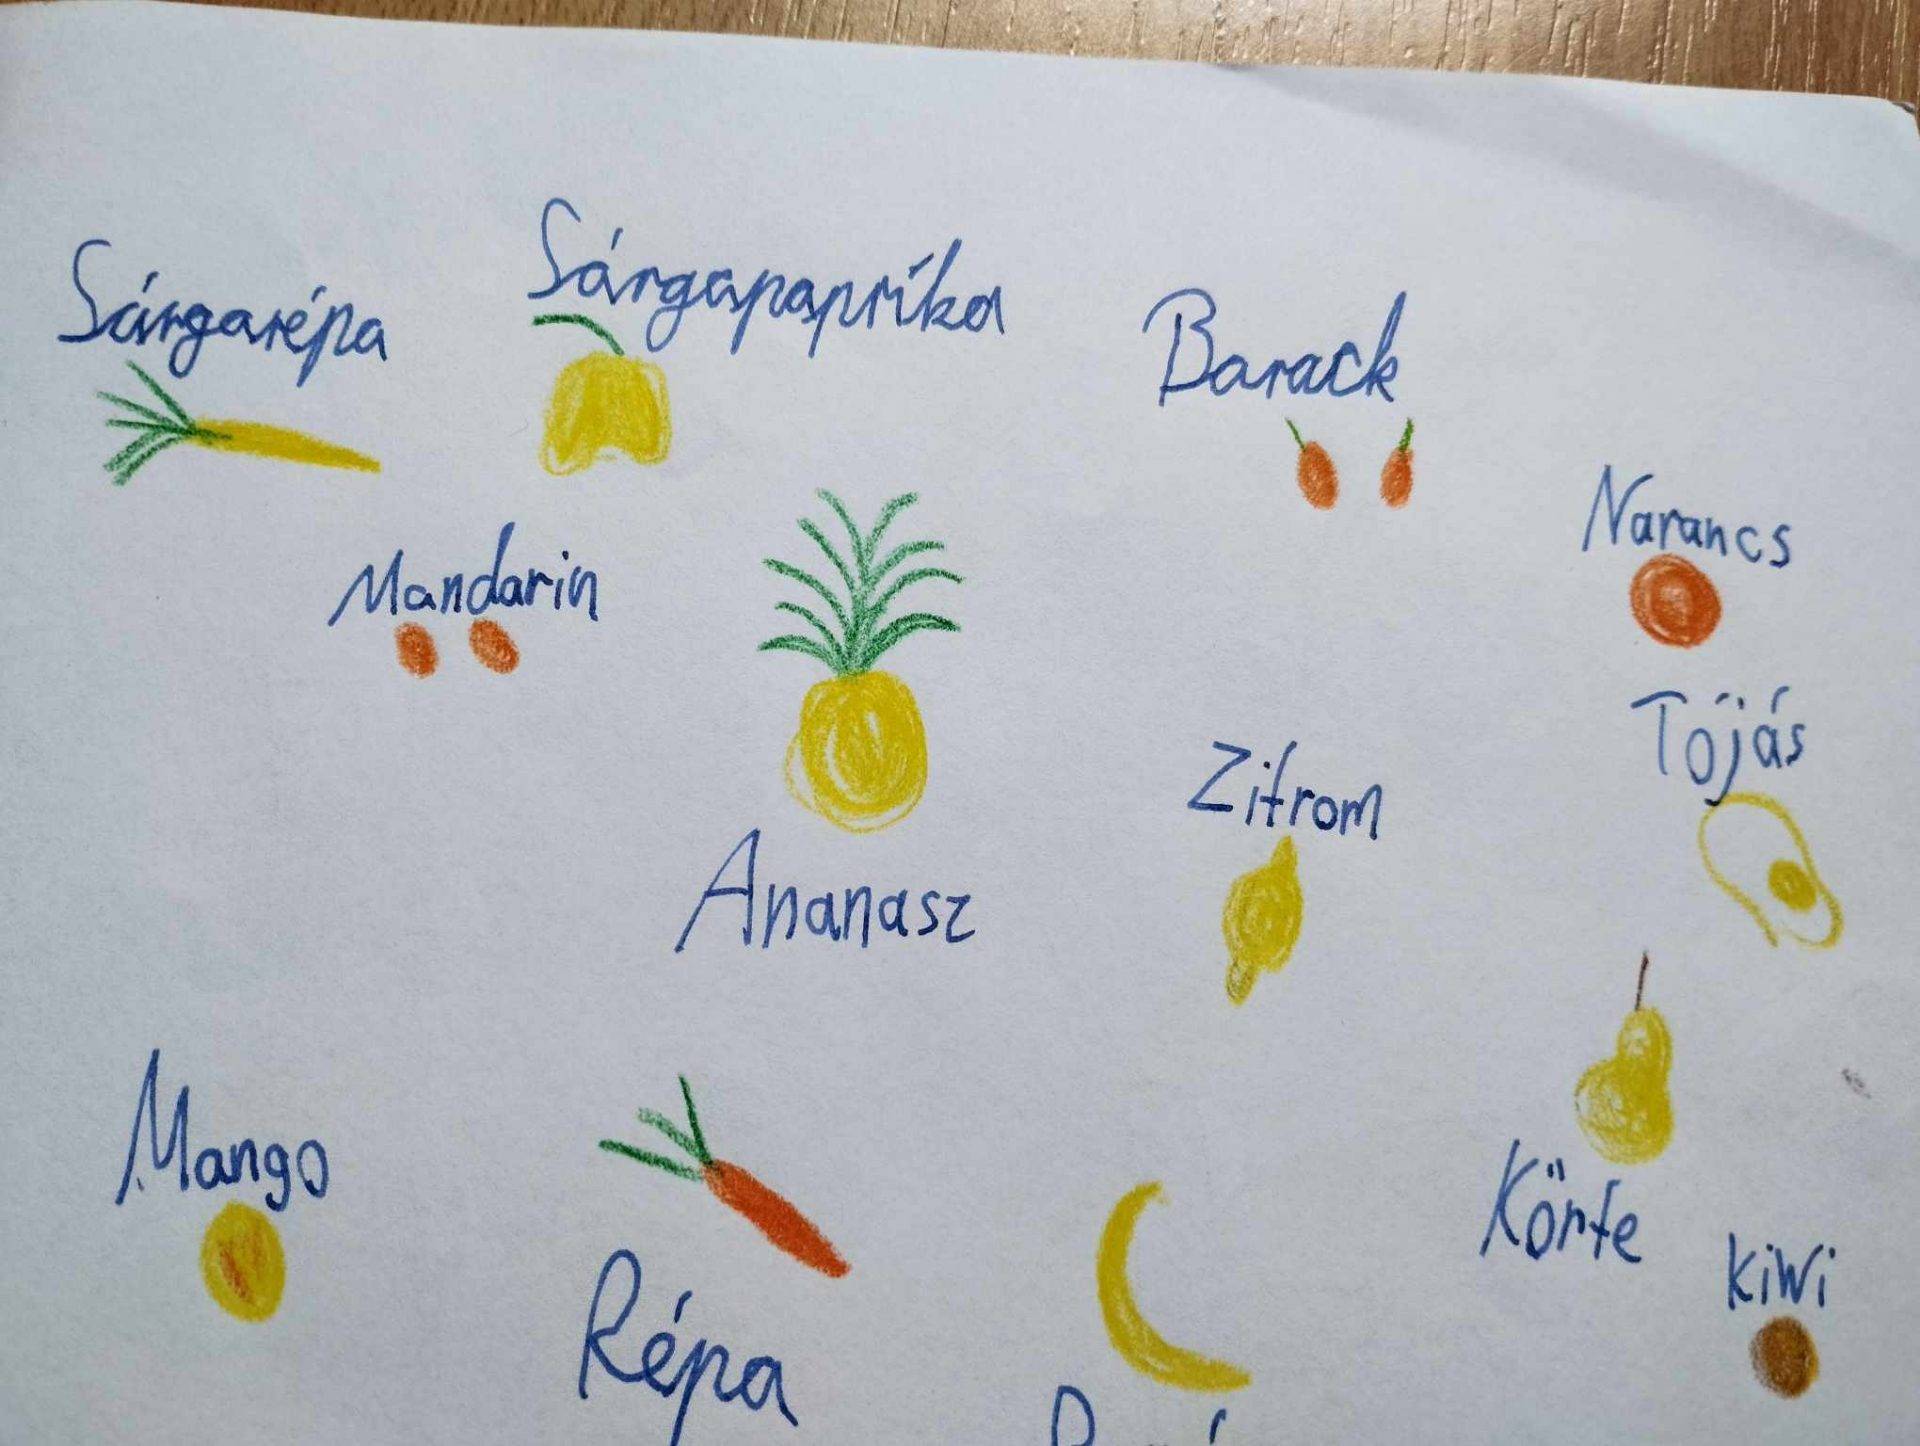 Sárgarépa
Sárgapapríka
Barack
Narancs
Mandarin
Tójás
Zitrom
Ananasz
Mango
Répa
Körte
kiwi